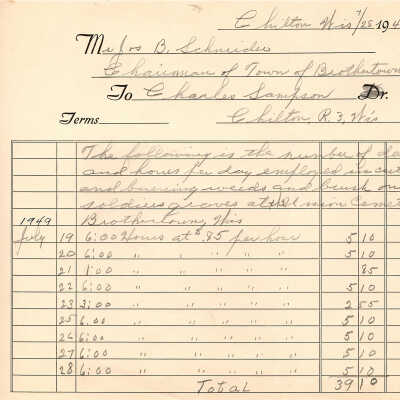 Chilton Wis 7/28 194
Mr Jos B. Schneider
Chairman of Town of Brothertown
To Charles Sampson Dr.
Terms Chilton, R. 3, Wis
The following is the number of da
and hours per day employed in cut
and burning weeds and brush on
soldiers graves at Union Cemet
1949 Brothertown, Wis
July 19 6:00 Hours at $.85 per hour 5 10
20 6:00 " " " " " 5 10
21 1:00 " " " " 85
22 6:00 " " " " 5 10
23 3:00 " " " " 2 55
25 6:00 " " " " 5 10
26 6:00 " " " " 5 10
27 6:00 " " " " 5 10
28 6:00 " " " " 5 10
Total 39 10